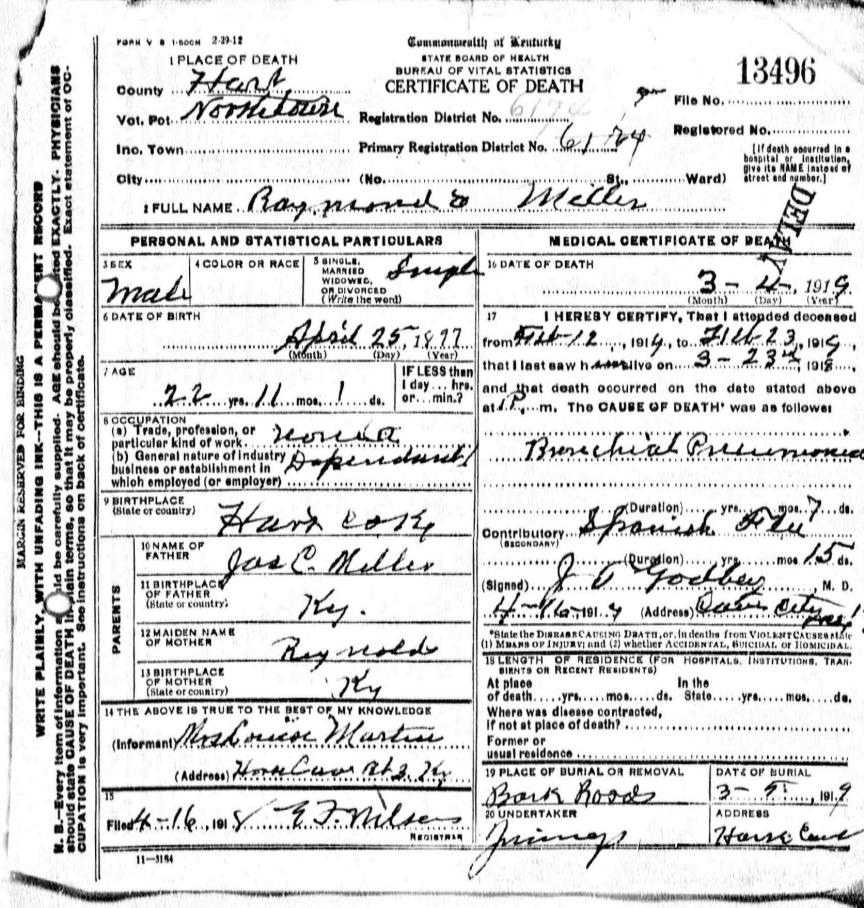 FORM V S 1-500M 2-29-12
Commonwealth of Kentucky
STATE BOARD OF HEALTH
BUREAU OF VITAL STATISTICS
CERTIFICATE OF DEATH
13496
1 PLACE OF DEATH
County Hart
Vot. Pct
Inc. Town
City (No. St., Ward)
Registration District No. 6174
Primary Registration District No. 6174
File No.
Registered No.
[If death occurred in a
hospital or institution,
give its NAME instead of
street and number.]
2 FULL NAME Raymond Miller
DELAY
PERSONAL AND STATISTICAL PARTICULARS
3 SEX
Male
4 COLOR OR RACE
5 SINGLE,
MARRIED
WIDOWED,
OR DIVORCED
(Write the word)
Single
6 DATE OF BIRTH
April 25 1897
(Month) (Day) (Year)
7 AGE
22 yrs. 11 mos. 1 ds.
IF LESS than
1 day... hrs.
or... min.?
8 OCCUPATION
(a) Trade, profession, or
particular kind of work.
(b) General nature of industry
business or establishment in
which employed (or employer)
Dependant
9 BIRTHPLACE
(State or country)
Hart Co Ky
PARENTS
10 NAME OF
FATHER
Jas C. Miller
11 BIRTHPLACE
OF FATHER
(State or country)
Ky.
12 MAIDEN NAME
OF MOTHER
Reynolds
13 BIRTHPLACE
OF MOTHER
(State or country)
Ky
14 THE ABOVE IS TRUE TO THE BEST OF MY KNOWLEDGE
(Informant Mrs Louise Martin
(Address) Horse Cave Rt 3 Ky
15
Filed 4-16, 191
REGISTRAR
11-3184
MEDICAL CERTIFICATE OF DEATH
16 DATE OF DEATH
3-4-, 1919
(Month) (Day) (Year)
17 I HEREBY CERTIFY, That I attended deceased
from Feb-12, 1919, to Feb 23, 1919,
that I last saw h alive on 3-23, 191
and that death occurred on the date stated above
at 1 P. m. The CAUSE OF DEATH* was as follows:
Bronchial Pneumonia
(Duration) yrs. mos. 7 ds.
Contributory Spanish Flu
(SECONDARY)
(Duration) yrs. mos. 15 ds.
(Signed) M. D.
4-16-191 (Address) Cave City
*State the DISEASE CAUSING DEATH, or, in deaths from VIOLENT CAUSES state
(1) MEANS OF INJURY; and (2) whether ACCIDENTAL, SUICIDAL or HOMICIDAL.
18 LENGTH OF RESIDENCE (FOR HOSPITALS, INSTITUTIONS, TRAN-
SIENTS OR RECENT RESIDENTS)
At place In the
of death yrs. mos. ds. State yrs. mos. ds.
Where was disease contracted,
If not at place of death?
Former or
usual residence
19 PLACE OF BURIAL OR REMOVAL
DATE OF BURIAL
3-9, 1919
20 UNDERTAKER
ADDRESS
Horse Cave
MARGIN RESERVED FOR BINDING
WRITE PLAINLY, WITH UNFADING INK—THIS IS A PERMANENT RECORD
N. B.—Every item of information should be carefully supplied. AGE should be stated EXACTLY. PHYSICIANS
should state CAUSE OF DEATH in plain terms, so that it may be properly classified. Exact statement of OC-
CUPATION is very important. See instructions on back of certificate.